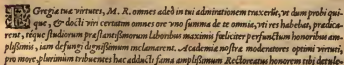 Gregia tua virtutes, M. R. omnes adeò in tui admirationem traxerũt, ve dum probi qui-
que, & docti viri certatim omnes ore vno summa de te omnia, vti res habebat, prædica-
rent, teque studiorum præstantissimorum laboribus maximis fæliciter perfunctum honoribus am-
plissimis, iam defungi dignissimum inclamarent. Academiæ nostræ moderatores optimi virtuti,
pro more, plurimum tribuentes hac adducti fama amplissimum Rectoreatus honorem tibi detule-